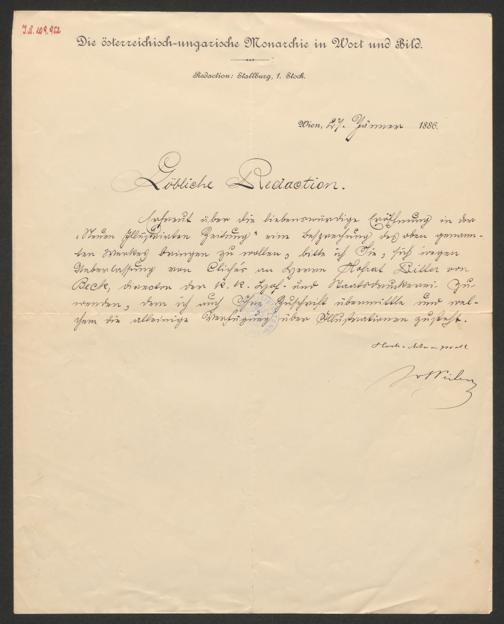 J.N. 109.952
Die österreichisch-ungarische Monarchie in Wort und Bild.
Redaction: Stallburg, 1. Stock.
Wien, 27. Jänner 1886.
Löbliche Redaction.
Erfreut über die liebenswürdige Eröffnung in der
„Neuen Illustrirten Zeitung" eine Besprechung des oben genann-
ten Werkes bringen zu wollen, bitte ich Sie, sich wegen
Ueberlassung von Clichés an Herrn Hofrat Ritter von
Beck, Director der k. k. Hof- und Staatsdruckerei zu
wenden, dem ich auch Ihre Zuschrift übermittle und wel-
chem die alleinige Verfügung über Illustrationen zusteht.
Hochachtungsvoll
Weilen